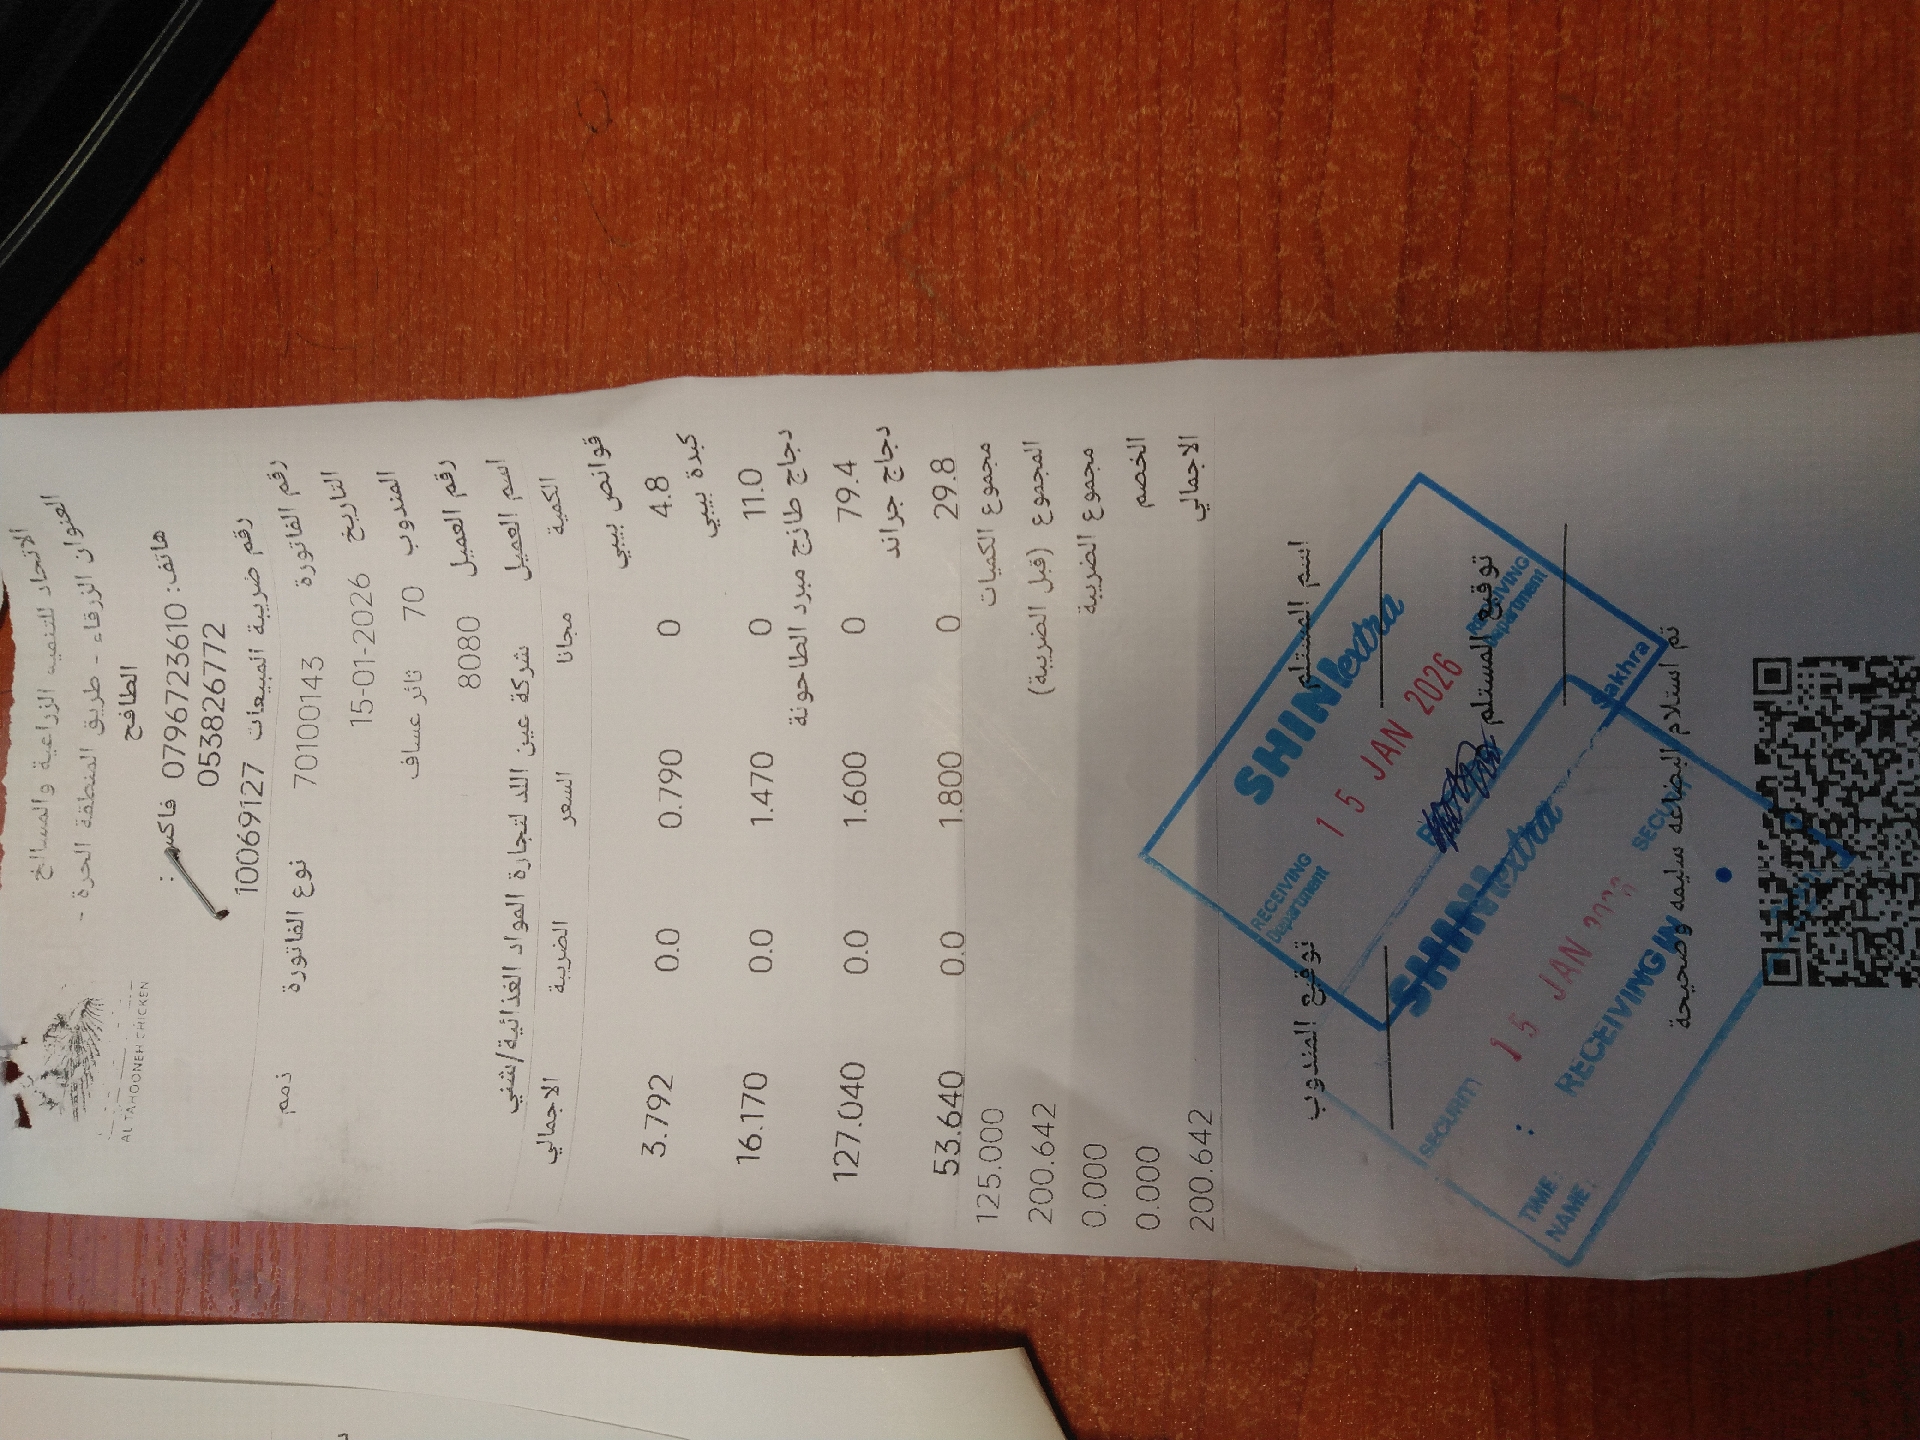 الاتحاد للتنميه الزراعية والمسالخ
العنوان الزرقاء - طريق المنطقة الحرة -
الطافح
AL TAHOONEH CHICKEN
هاتف: 0796723610 فاكس :
053826772
رقم ضريبة المبيعات 10069127
رقم الفاتورة 70100143 نوع الفاتورة ذمم
التاريخ 15-01-2026
المندوب 70 ثائر عساف
رقم العميل 8080
اسم العميل شركة عين اللد لتجارة المواد الغذائية/شني
الكمية مجانا السعر الضريبة الاجمالي
قوانص بيبي
4.8 0 0.790 0.0 3.792
كبدة بيبي
11.0 0 1.470 0.0 16.170
دجاج طازج مبرد الطاحونة
79.4 0 1.600 0.0 127.040
دجاج جراند
29.8 0 1.800 0.0 53.640
مجموع الكميات 125.000
المجموع (قبل الضريبة) 200.642
مجموع الضريبة 0.000
الخصم 0.000
الاجمالي 200.642
اسم المستلم توقيع المندوب
توقيع المستلم
تم استلام البضاعه سليمه وصحيحة
SHINIextra
RECEIVING Department
15 JAN 2026
RECEIVING Department
Sakhra
SHINIextra
SECURITY
15 JAN
RECEIVING IN
TIME:
NAME: